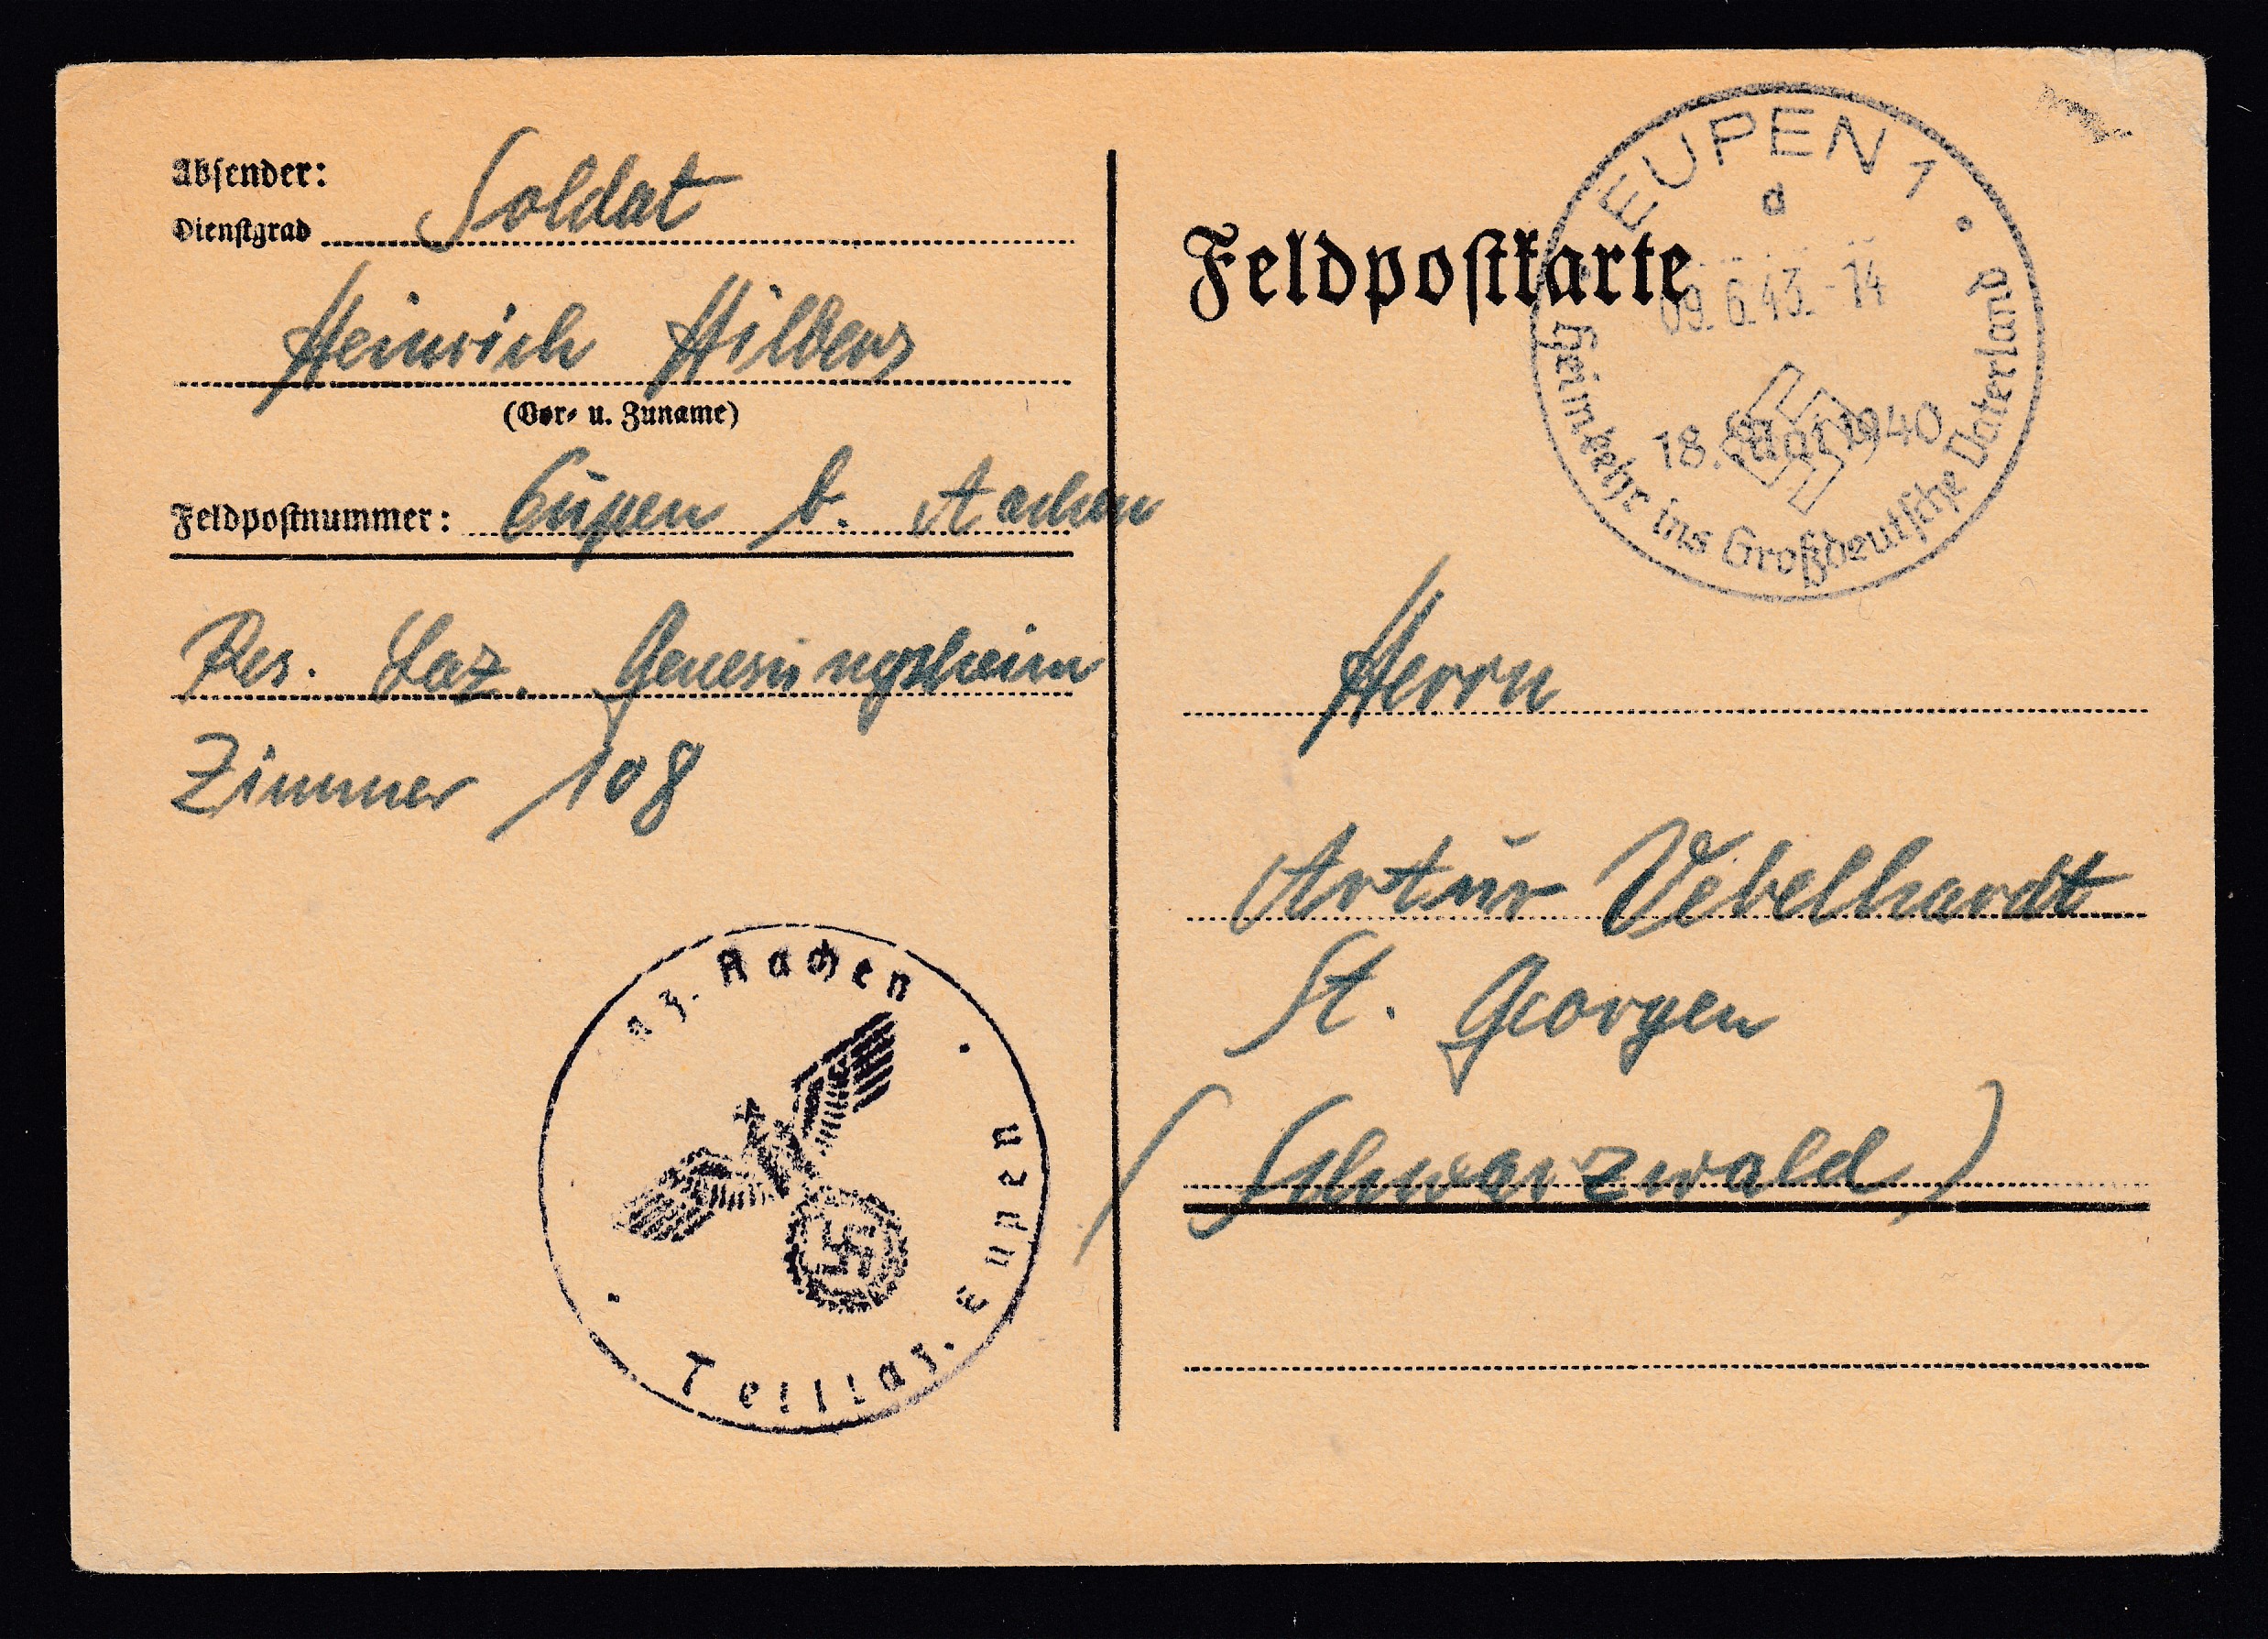 Absender:
Dienstgrad Soldat
Heinrich Hilbers
(Vor- u. Zuname)
Feldpostnummer: Eupen b. Aachen
Res. Laz. Genesungsheim
Zimmer 108
az. Aachen
Teillaz. Eupen
Feldpostkarte
EUPEN 1
d
09.6.43.-14
18. Mai 1940
Heimkehr ins Großdeutsche Vaterland
Herrn
Artur Uebelhardt
St. Georgen
(Schwarzwald)